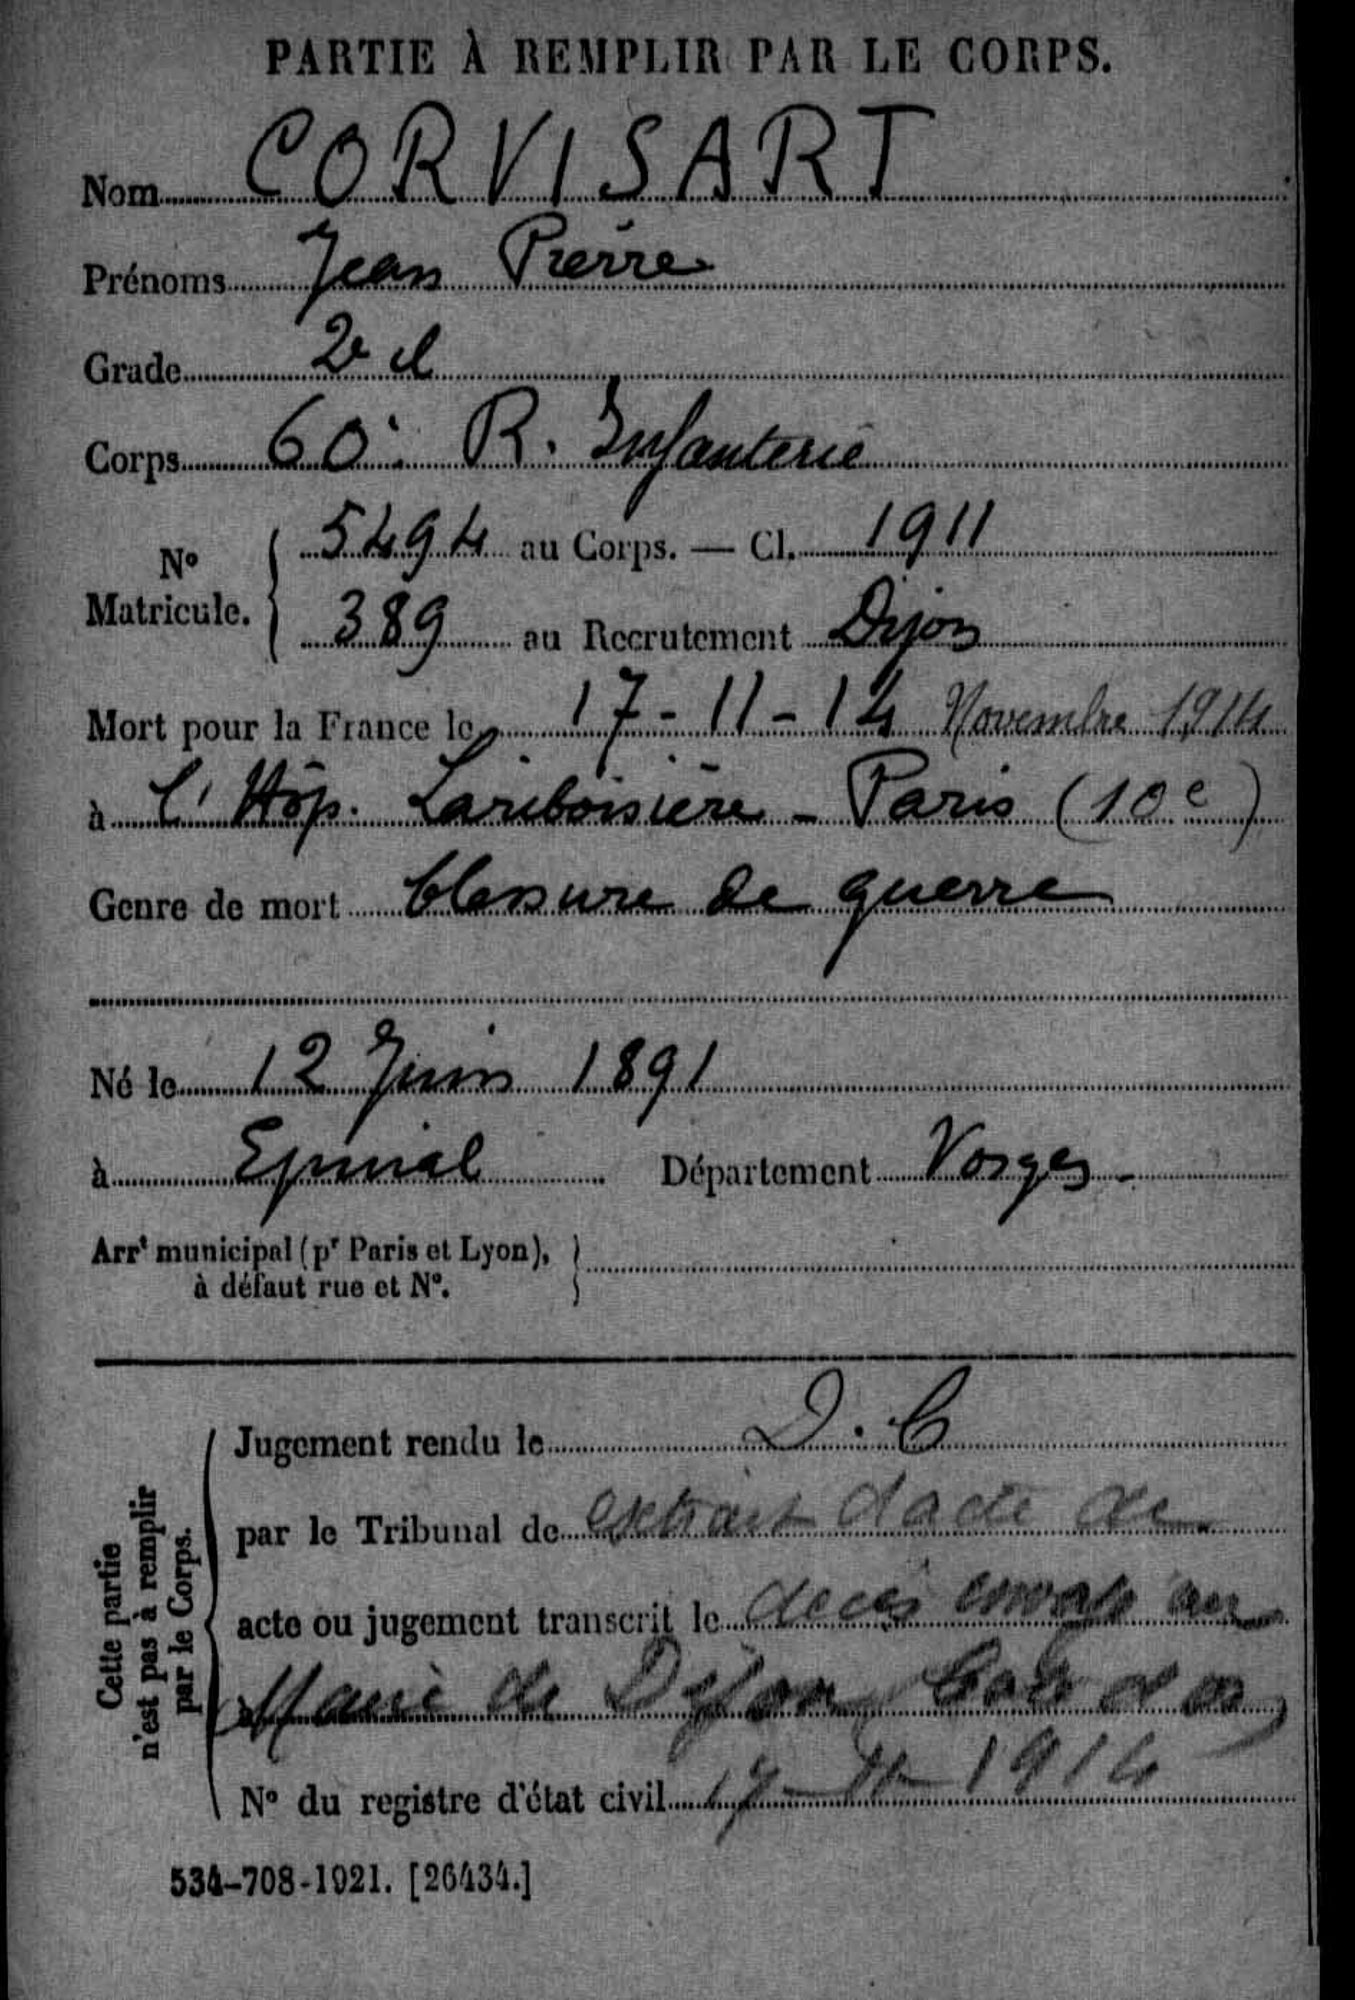 PARTIE À REMPLIR PAR LE CORPS.
Nom CORVISART
Prénoms Jean Pierre
Grade 2e cl
Corps 60e R. Infanterie
No Matricule. { 5494 au Corps. — Cl. 1911
389 au Recrutement Dijon
Mort pour la France le 17-11-14 Novembre 1914
à l'Hôp. Lariboisière - Paris (10e)
Genre de mort blessure de guerre
Né le 12 Juin 1891
à Epinal Département Vosges -
Arrt municipal (pr Paris et Lyon),
à défaut rue et No.
Cette partie
n'est pas à remplir
par le Corps.
Jugement rendu le D.C
par le Tribunal de extrait d'acte de
acte ou jugement transcrit le decès envoyé au
à Maire de Dijon
No du registre d'état civil 17-11-1914
534-708-1921. [26434.]